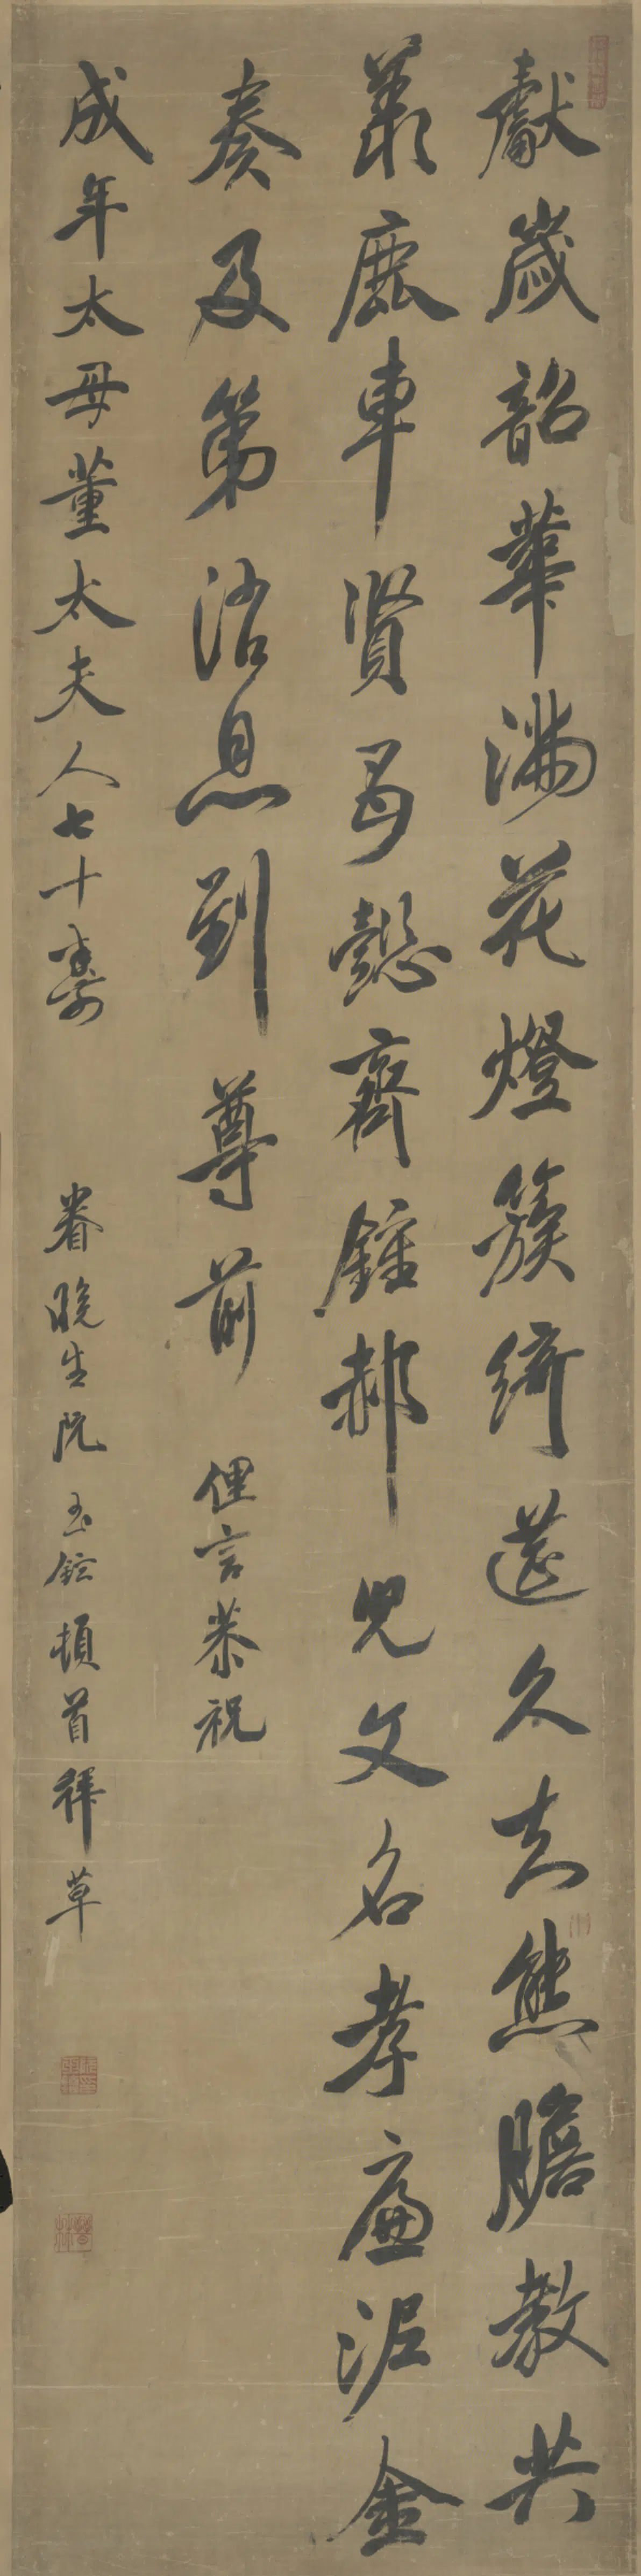 獻歲韶華滿花燈簇綺筵久熊膽教共
羨鹿車賢懿齊鍾郝兒文名孝廉泥金
奏及第消息到尊前 俚言恭祝
成年太母董太夫人七十壽 眷晚生阮玉鉉頓首拜草